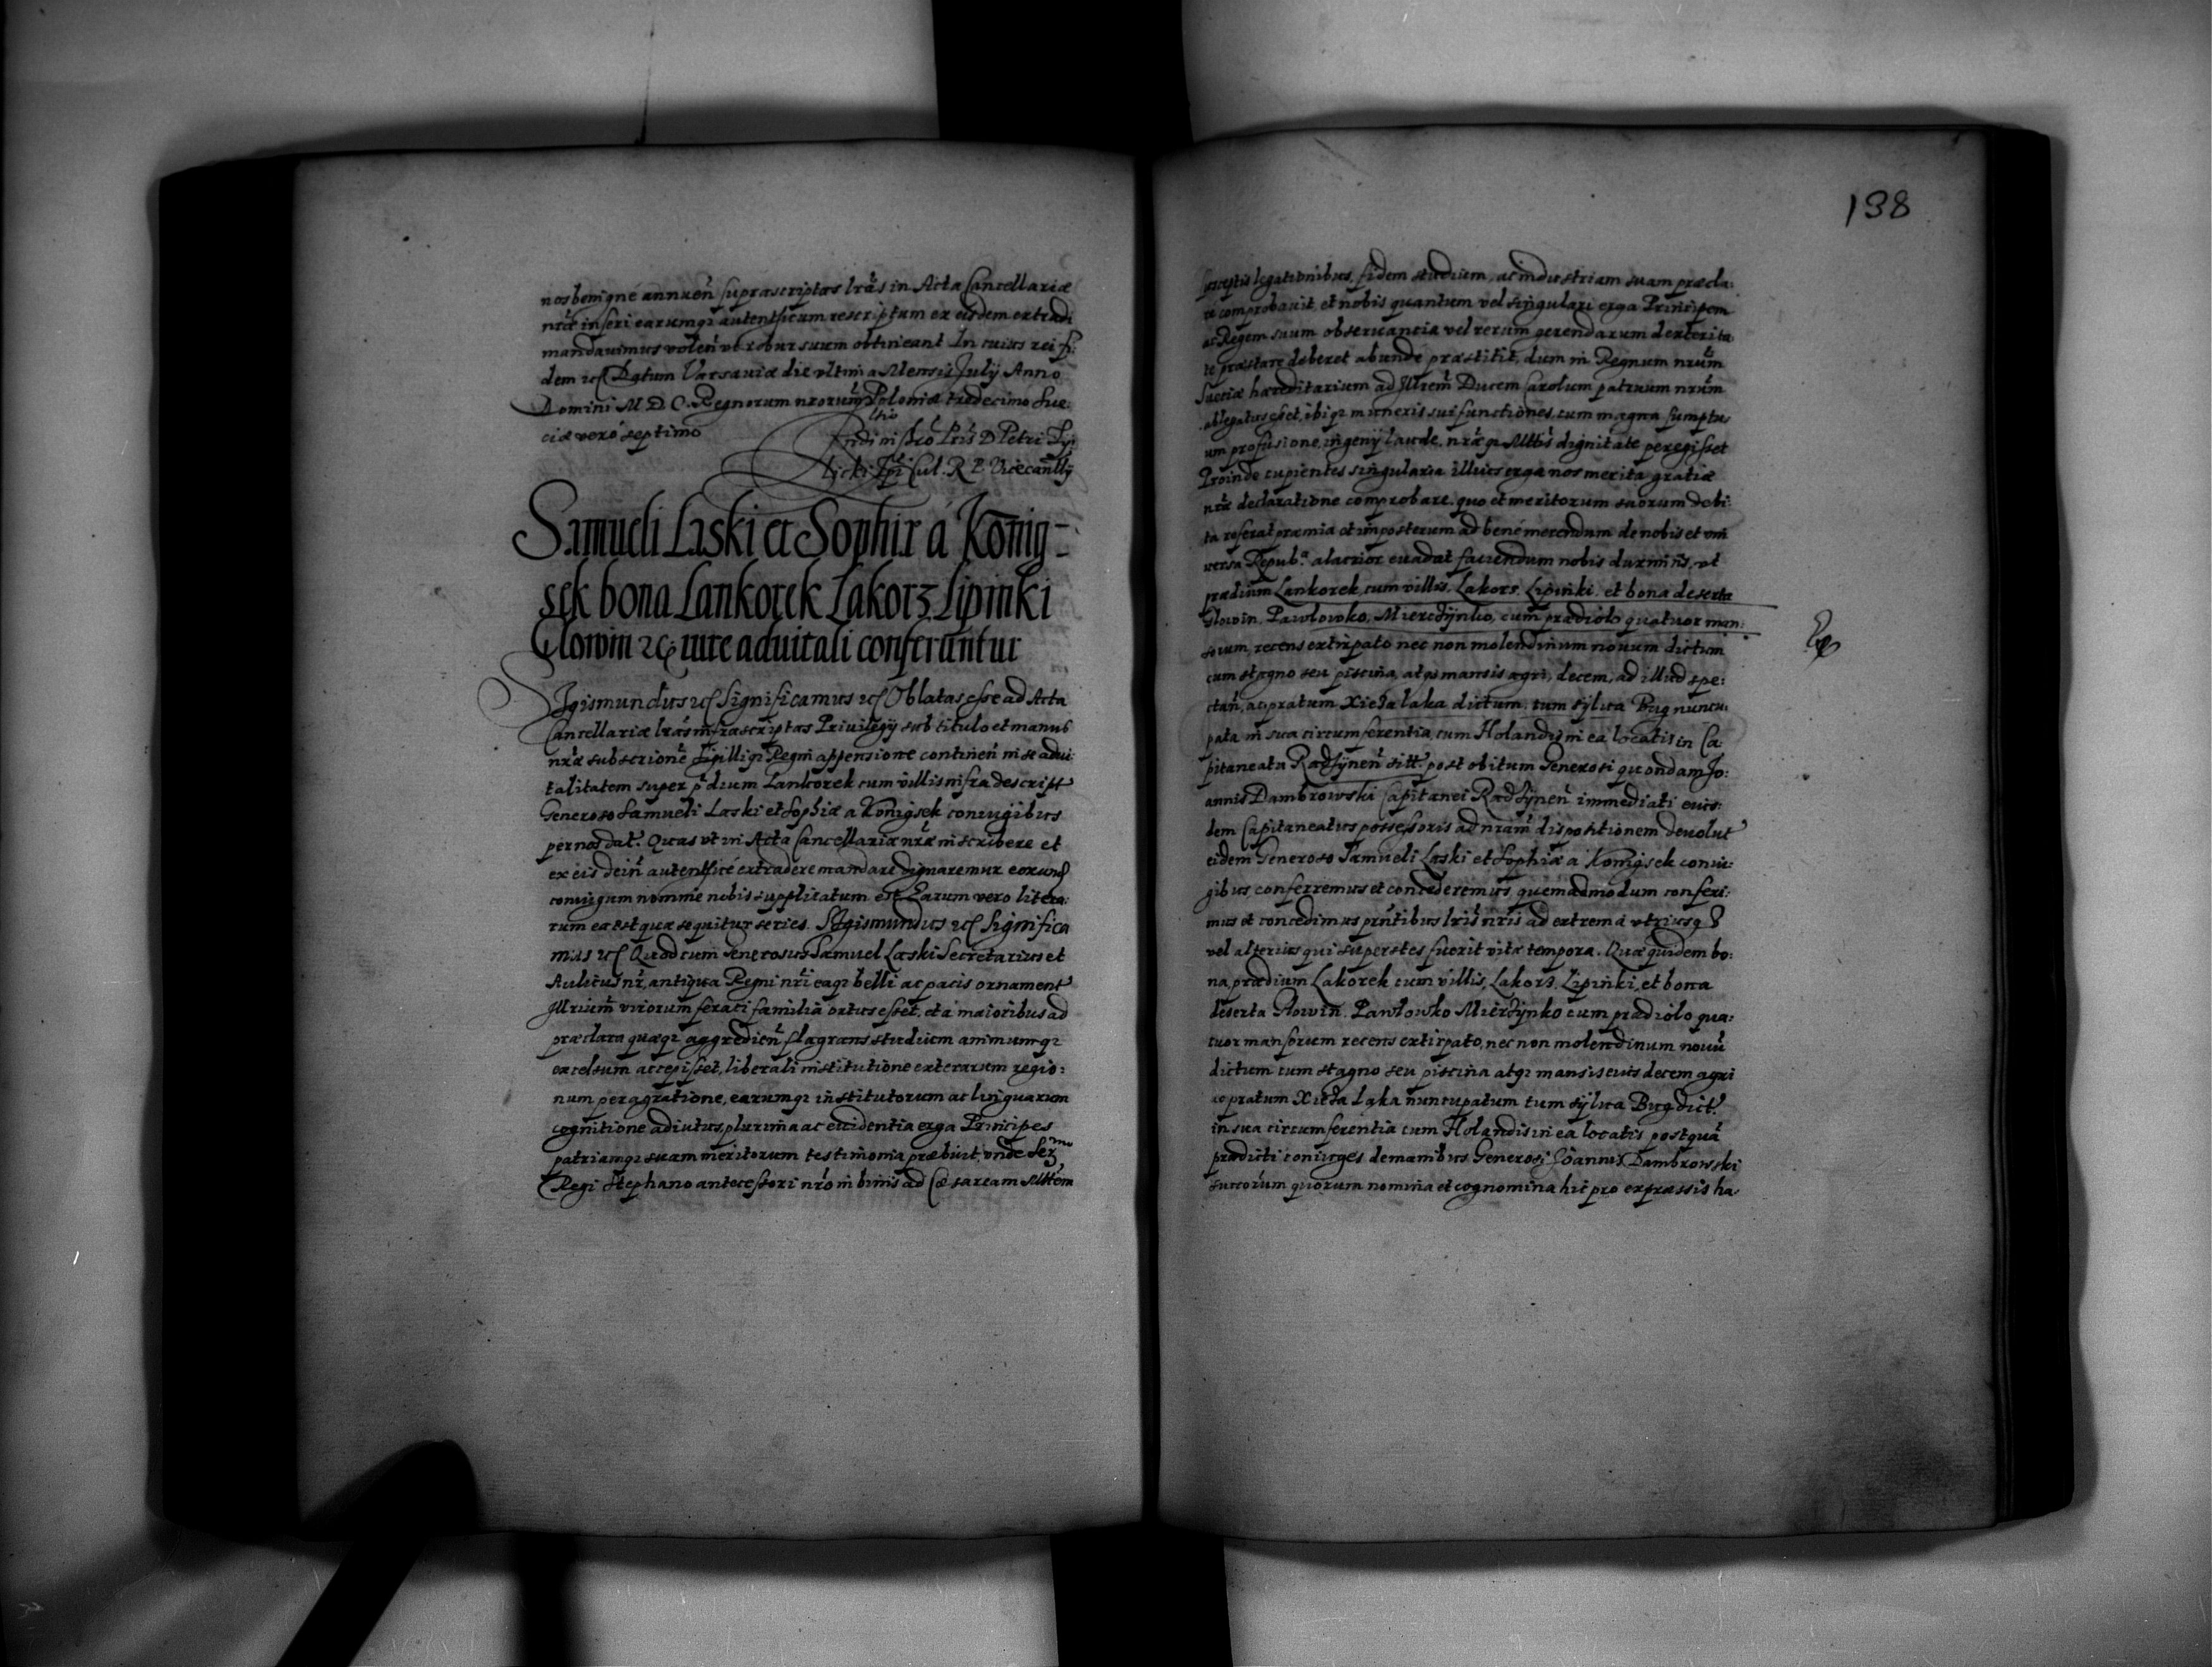 nos benigne annuen̄ suprascriptas lr̄as in Acta Cancellariæ
nr̄æ inseri earumq₃ autenthicum rescriptum ex eisdem extradi
mandauimus volen̄ vt robur suum obtineant In cuius rei fi:
dem ꝛc Datum Varsauiæ die vltima Mensis July Anno
Domini M D C. Regnorum nr̄orum Poloniæ tredecimo Sue:
ciæ vero septimo
D Petri Ty:
licki Epī Cul. R P. Vicecan̄llÿ
Samueli Laski et Sophiæ á König-
sek bona Lankorek Lakorz Lipinki
Glowin ꝛc iure aduitali conferuntur
Sigismundus ꝛc Significamus ꝛc Oblatas esse ad Acta
Cancellariæ lr̄as infrascriptas Priuilegÿ sub titulo et manus
nr̄æ subscrione Sigilliq₃ Regni appensione continen̄ in se adui:
talitatem super p̄dium Lankorek cum villis infra descript
Generoso Samueli Laski et Sophiæ a Königsek coniugibus
per nos dat. Quas vt in Acta Cancellariæ nr̄æ inscribere et
ex eis dein̄ autenthicé extradere mandare dignaremur eorund
coniugum nomine nobis supplicatum est Earum vero litera:
rum ea est quæ sequitur series. Sigismundus ꝛc Significa
mus ꝛc Quod cum Generosus Samuel Laski Secretarius et
Aulicus nr̄, antiqua Regni nr̄i eaq₃ belli ac pacis ornament
Illrium̄ virorum feraci familia ortus esset, et á maioribus ad
præclara quæq₃ aggredien̄ flagrans studium animumq₃
excelsum accepisset, liberali institutione exterarum regio:
num peragratione, earumq₃ institutorum ac linguarum
cognitione adiutus plurima ac euidentia erga Principes
patriamq₃ suam meritorum testimonia præbuit, vnde Ser:mo
Regi Stephano antecessori nr̄o in binis ad Cæsaream Mttem
138
susceptis legationibus, fidem studium, ac industriam suam præcla:
re comprobauit et nobis quantum vel singulari erga Principem
ac Regem suum obseruantia vel rerum gerendarum dexterita
te præstare deberet abunde præstitit, dum in Regnum nrūm
Suetiæ hæreditarium ad Illrem̄ Ducem Carolum patruum nrūm
ablegatus esset, ibiq₃ muneris sui functiones, cum magna sumptu
um profusione, ingenÿ laude, nr̄æq₃ Mttis dignitate peregisset
Proinde cupientes singularia illius erga nos merita gratiæ
nr̄æ declaratione comprobare, quo et meritorum suorum debi:
ta referat præmia et imposterum ad bené merendum de nobis et vni
uersa Repub.ᵃ alacrior euadat faciendum nobis duximus, vt
prædium Lankorek, cum villis, Lakors, Lipinki, et bona deserta
Glowin, Pawlowko, Mierdzynko, cum prædiolo quatuor man:
sorum, recens extirpato nec non molendinum nouum dictum
cum stagno seu piscina, atq₃ mansis agri, decem, ad illud spe:
ctan̄, ac pratum Xieża laka dictum, tum sylua Bug nuncu:
pata in sua circumferentia, cum Holandis in ea locatis in Ca:
pitaneatu Radzynen̄ sitt. post obitum Generosi quondam Jo:
annis Dambrowski Capitanei Radzynen̄ immediati eius:
dem Capitaneatus possessoris ad nram̄ dispositionem deuolut
eidem Generoso Samueli Laski et Sophiæ a Königsek coniu:
gibus, conferremus et concederemus, quemadmodum conferi:
mus et concedimus pn̄tibus lris̄ nr̄is ad extrema vtriusq₃
vel alterius qui superstes fuerit vitæ tempora. Quæ quidem bo:
na, prædium Lakorek cum villis, Lakors, Lipinki, et bona
deserta Glowin, Pawlowko Mierdzynko cum prædiolo qua:
tuor mansorum recens extirpato, nec non molendinum nouū
dictum cum stagno seu piscina atq₃ mansis eius decem agri
ac pratum Xieża Laka nuncupatum tum sylua Bug dict.
in sua circumferentia cum Holandis in ea locatis postquā
prædicti coniuges de manibus Generosi Joannis Dambrowski
succorum quorum nomina et cognomina hic pro expressis ha: